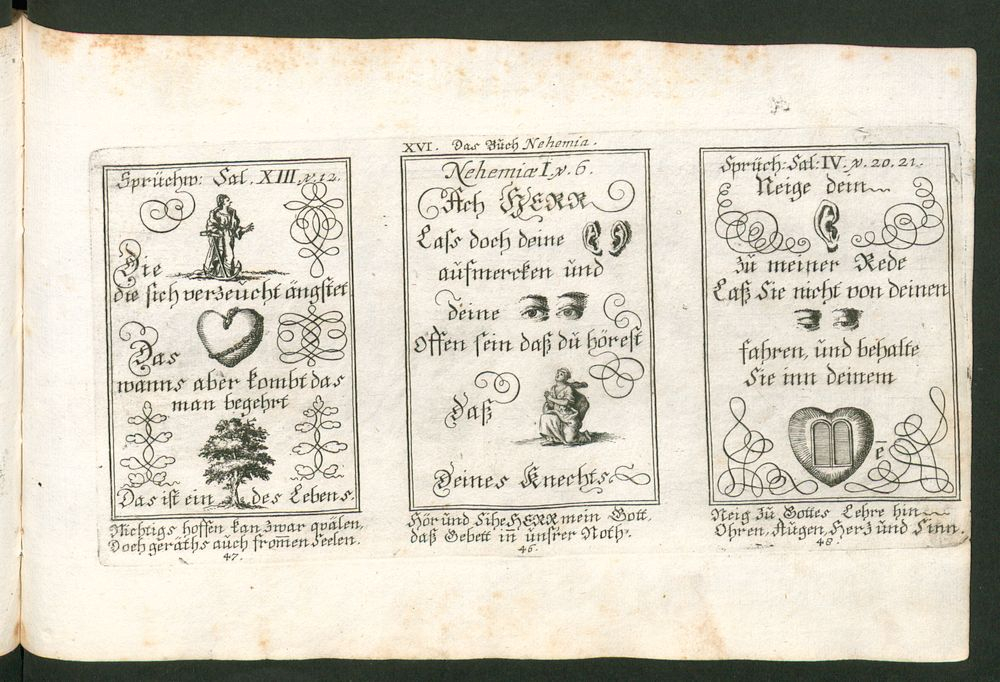 Sprüchw: Sal. XIII, v. 12.
Die
die sich verzeucht ängstet
Das
wanns aber kombt das
man begehrt
Das ist ein des Lebens.
Nichtigs hoffen kan zwar qvälen,
Doch geräths auch from̄en Seelen.
47.
XVI. Das Buch Nehemia.
Nehemiæ I, v. 6.
Ach HERR
Lass doch deine
aufmercken und
deine
Offen sein daß du hörest
daß
Deines Knechts
Hör und Sihe HERR mein Gott,
daß Gebett in unsrer Noth.
46.
Sprüch: Sal: IV. v. 20. 21.
Neige dein
zu meiner Rede
Laß Sie nicht von deinen
fahren, und behalte
Sie inn deinem
e
Neig zu Gottes Lehre hin
Ohren, Augen, Herz und Sinn.
48.